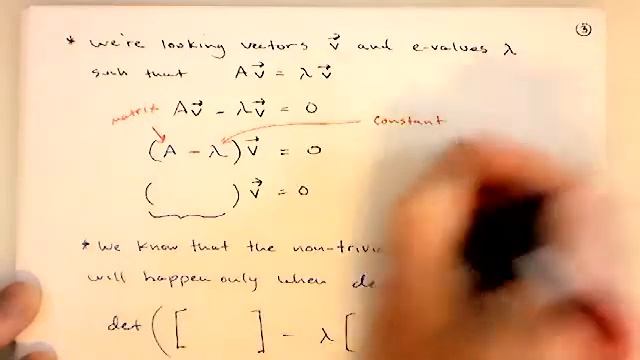 ③
* We're looking vectors v⃗ and e-values λ
such that Av⃗ = λv⃗
matrix Av⃗ - λv⃗ = 0
constant
(A - λ) v⃗ = 0
( ) v⃗ = 0
* We know that the non-trivi
will happen only when de
det ( [ ] - λ [